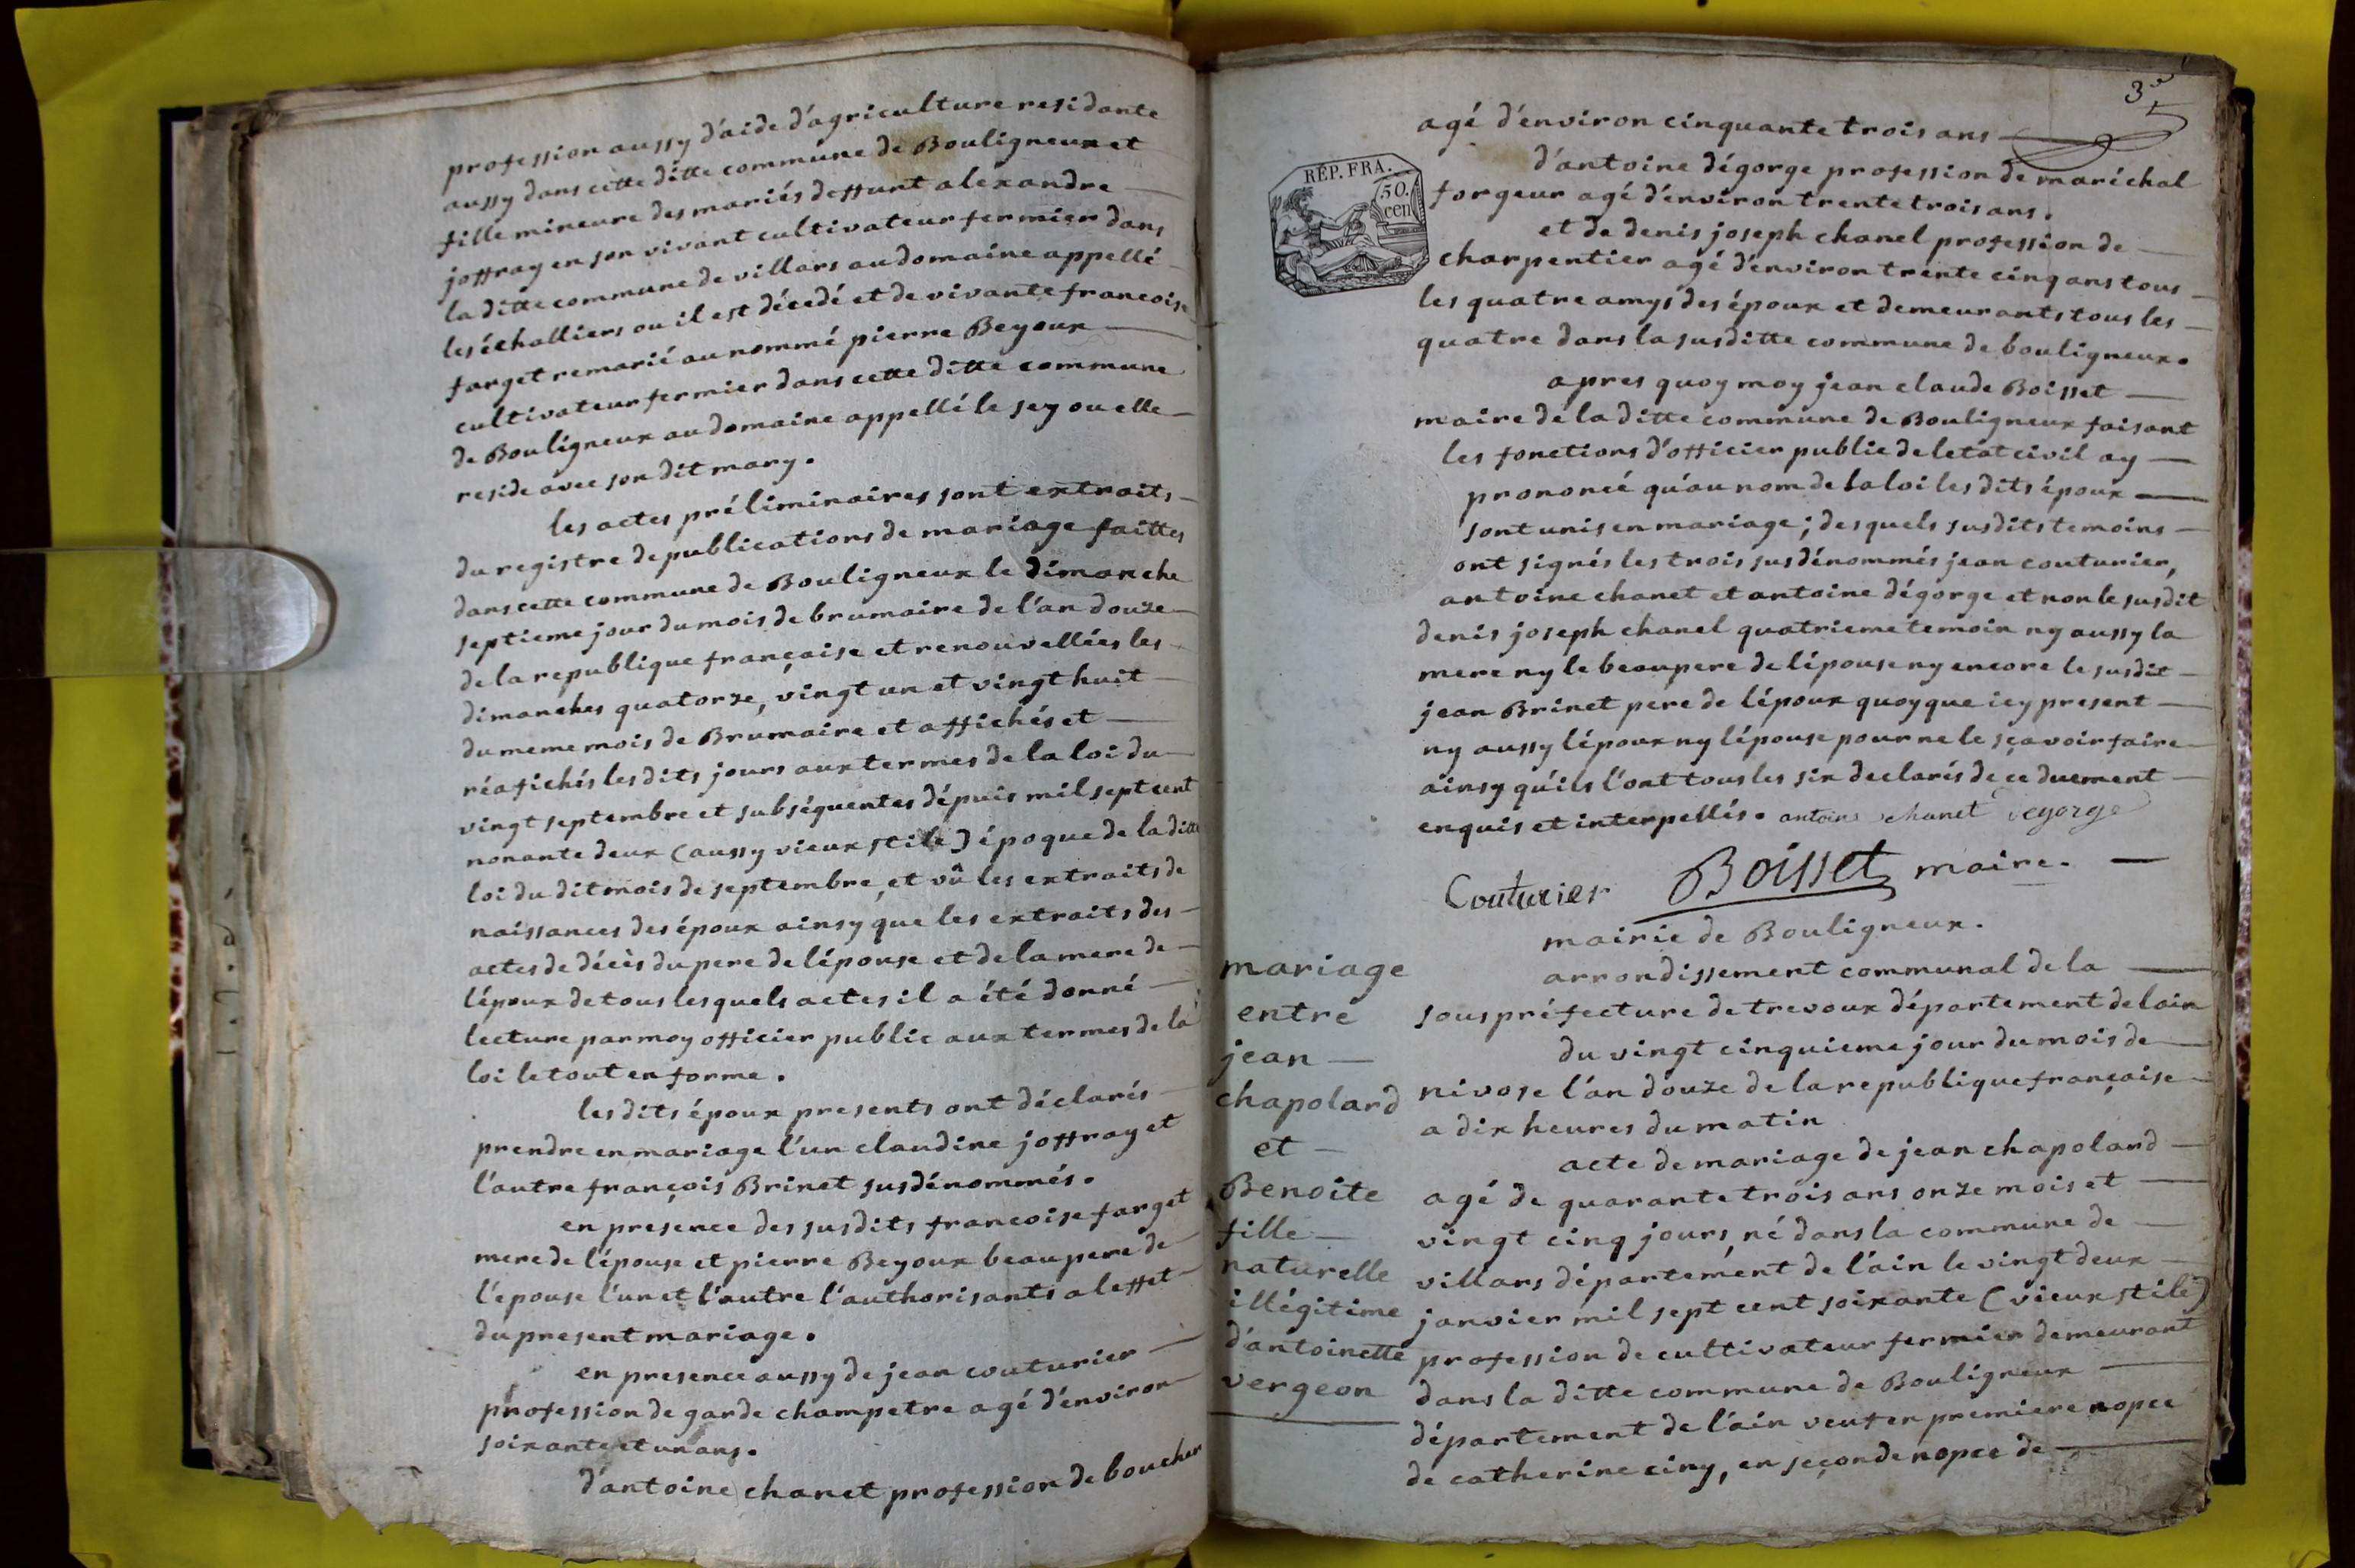 profession aussy d'aide d'agriculture residante
aussy dans cette ditte commune de Bouligneux et
fille mineure des mariés deffunt alexandre
joffray en son vivant cultivateur fermier dans
la ditte commune de villars au domaine appellé
les échalliers ou il est décedé et de vivante francoise
farget remarié au nommé pierre Beyoux
cultivateur fermier dans cette ditte commune
de Bouligneux au domaine appellé le sey ou elle
reside avec son dit mary.
les actes préliminaires sont extraits
du registre de publications de mariage faittes
dans cette commune de Bouligneux le dimanche
septieme jour du mois de brumaire de l'an douze
de la republique française et renouvellées les
dimanches quatorze, vingt un et vingt huit
du meme mois de Brumaire et affichés et
réafichés les dits jours aux termes de la loi du
vingt septembre et subséquentes dépuis mil sept cent
nonante deux (aussy vieux stile) époque de la ditte
loi du dit mois de septembre, et vû les extraits de
naissances des époux ainsy que les extraits des
actes de décès du pere de lépouse et de la mere de
lépoux de tous lesquels actes il a été donné
lecture par moy officier public aux termes de la
loi le tout en forme.
les dits époux presents ont déclarés
prendre en mariage l'un claudine joffray et
l'autre françois Brinet susdénommés.
en presence des susdits francoise farget
mere de lépouse et pierre Beyoux beaupere de
l'épouse l'un et l'autre l'authorisants a leffet
du present mariage.
en presence aussy de jean couturier
profession de garde champetre agé d'énviron
soixante et un ans.
d'antoine chanet profession de boucher
3e
agé d'énviron cinquante trois ans
d'antoine dégorge profession de maréchal
forgeur agé d'énviron trente trois ans.
et de denis joseph chanel profession de
charpentier agé d'énviron trente cinq ans tous
les quatre amys des époux et demeurants tous les
quatre dans la susditte commune de bouligneux.
RÉP. FRA.
50.
cen
apres quoy moy jean claude Boisset
maire de la ditte commune de Bouligneux faisant
les fonctions d'officier public de letat civil ay
prononcé qu'au nom de la loi les dits époux
sont unis en mariage; desquels susdits temoins
ont signés les trois susdénommés jean couturier,
antoine chanet et antoine dégorge et non le susdit
denis joseph chanel quatrieme temoin ny aussy la
mere ny le beaupere de lépouse ny encore le susdit
jean Brinet pere de lépoux quoyque icy present
ny aussy lépoux ny lépouse pour ne le sçavoir faire
ainsy qu'ils l'ont tous les six declarés de ce duement
enquis et interpellés. antoine chanet degorge
Couturier Boisset maire.
mairie de Bouligneux.
arrondissement communal de la
sous préfecture de trevoux département de lain
du vingt cinquieme jour du mois de
nivose l'an douze de la republique française
a dix heures du matin
mariage
entre
jean
chapolard
et
Benoite
fille
naturelle
illégitime
d'antoinette
vergeon
acte de mariage de jean chapolard
agé de quarante trois ans onze mois et
vingt cinq jours, né dans la commune de
villars département de l'ain le vingt deux
janvier mil sept cent soixante (vieux stile)
profession de cultivateur fermier demeurant
dans la ditte commune de Bouligneux
département de l'ain veuf en premiere nopce
de catherine ciny, en seçonde nopce de